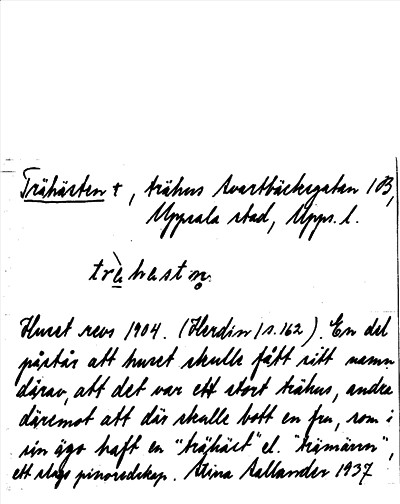 Trähästen †, trähus Svartbäcksgatan 1B,
Uppsala stad, Upps. l.
trä̀hästn̥.
Huset revs 1904. (Herdin 1 s. 162). En del
påstår att huset skulle fått sitt namn
därav, att det var ett stort trähus, andra
däremot att där skulle bott en fru, som i
sin ägo haft en "trähäst" el. "trämärrn",
ett slags pinoredskap. Stina Sallander 1937